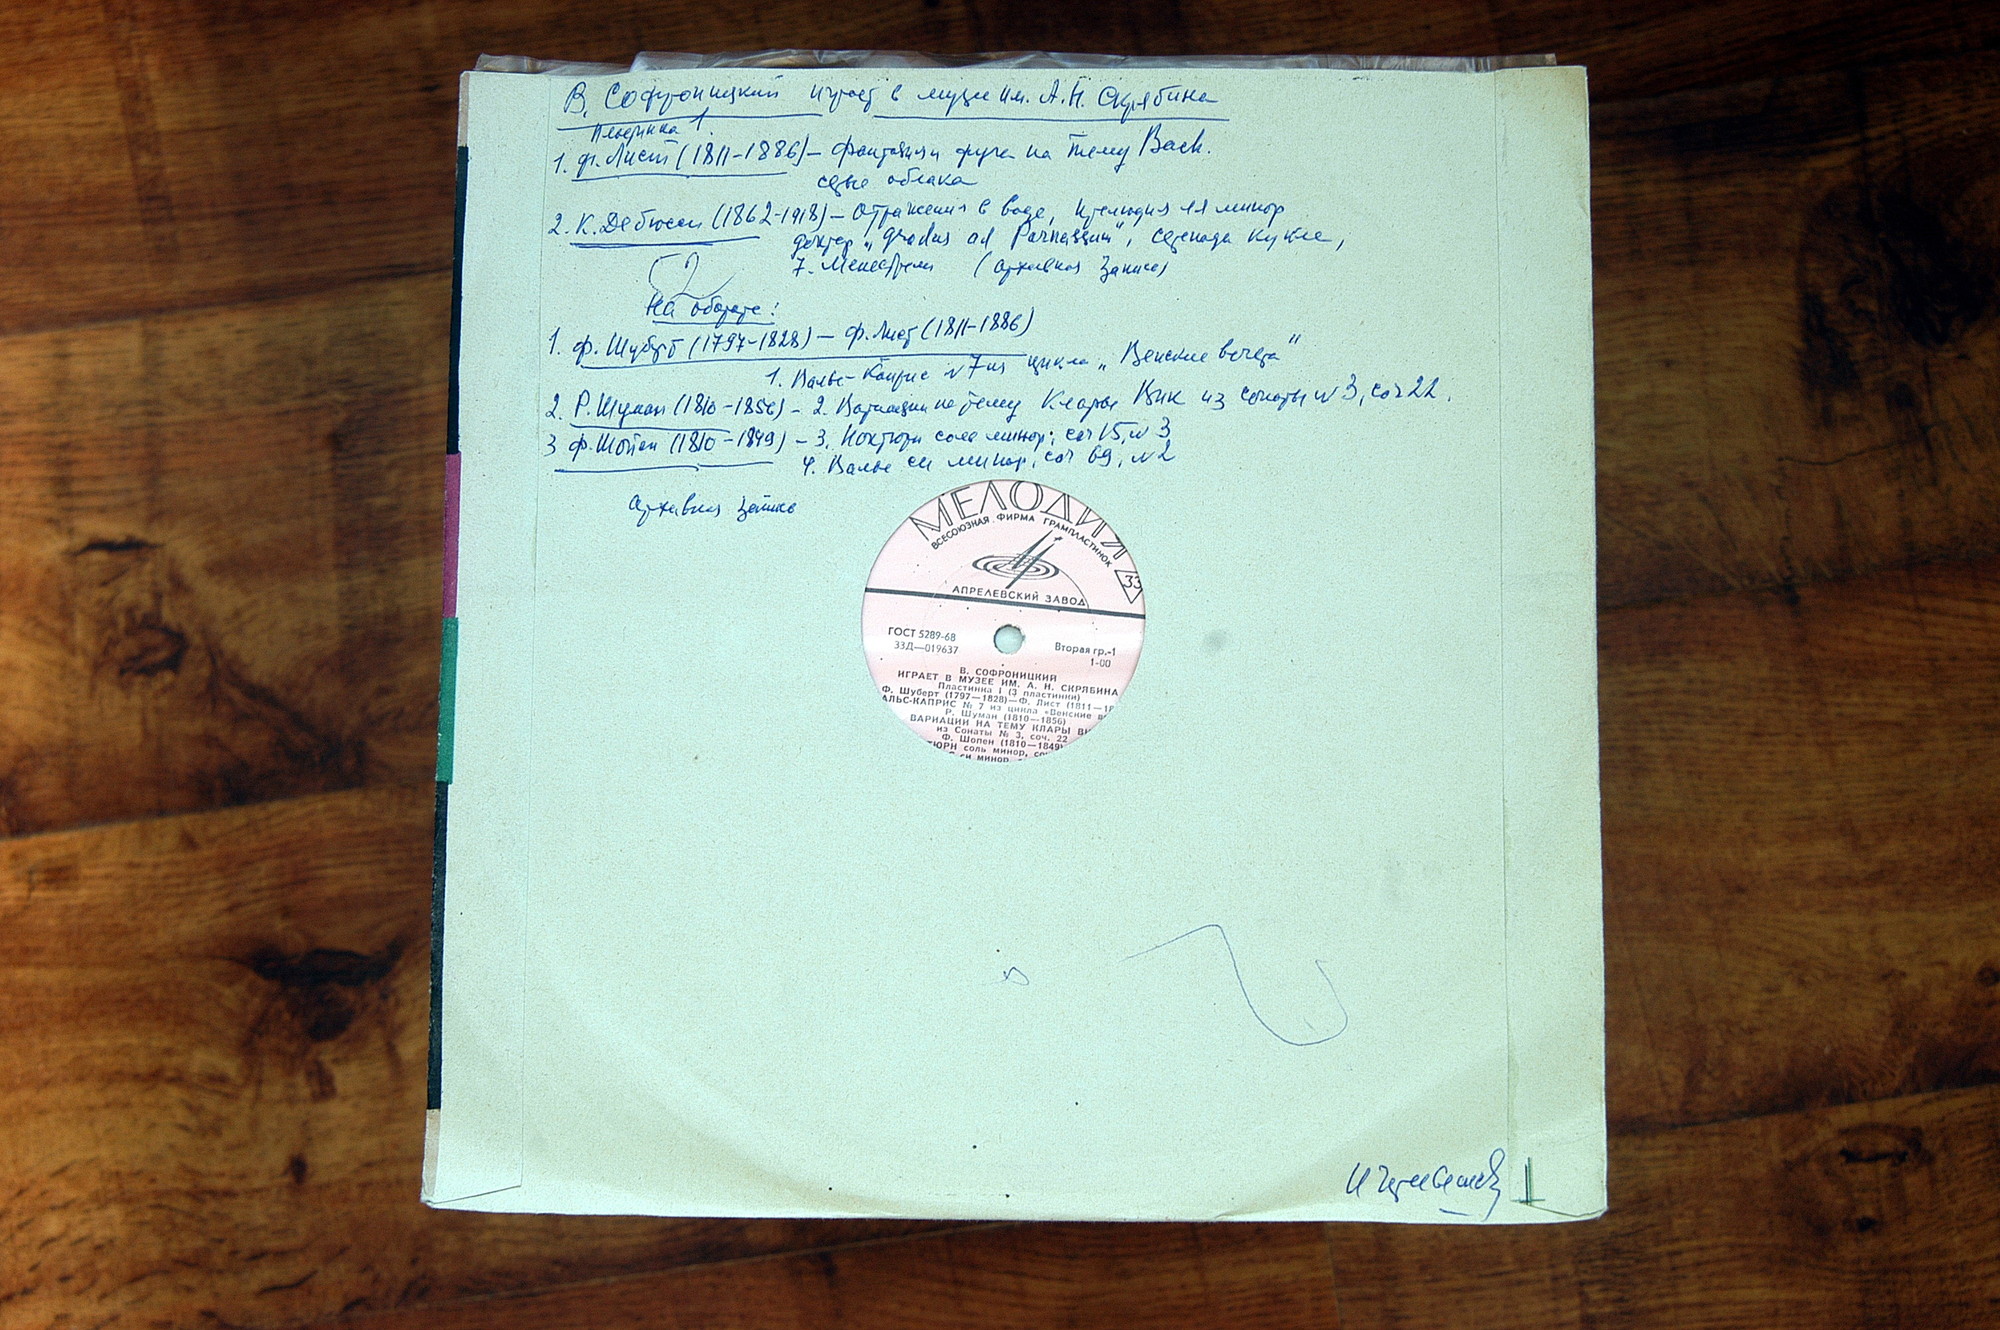 В. Софроницкий играет в музее им. А.Н. Скрябина
Пластинка 1.
1. Ф. Лист (1811-1886) – Фантазия и фуга на тему Bach.
серые облака
2. К. Дебюсси (1862-1918) – Отражения в воде, прелюдия ля минор
доктор "gradus ad Parnassum", серенада кукле,
7. Менестрели (архивная запись)
На обороте:
1. Ф. Шуберт (1797-1828) – Ф. Лист (1811-1886)
1. Вальс-Каприс №7 из цикла „Венские вечера"
2. Р. Шуман (1810-1856) – 2. Вариации на тему Клары Вик из сонаты №3, соч 22.
3 Ф. Шопен (1810-1849) – 3. Ноктюрн соль минор, соч 15, №3
4. Вальс си минор, соч 69, №2
Архивная запись
МЕЛОДИЯ
ВСЕСОЮЗНАЯ ФИРМА ГРАМПЛАСТИНОК
33
АПРЕЛЕВСКИЙ ЗАВОД
ГОСТ 5289-68
33Д—019637
Вторая гр.-1
1-00
В. СОФРОНИЦКИЙ
ИГРАЕТ В МУЗЕЕ ИМ. А. Н. СКРЯБИНА
Пластинка 1 (3 пластинки)
Ф. Шуберт (1797—1828)—Ф. Лист (1811—18
АЛЬС-КАПРИС № 7 из цикла «Венские в
Р. Шуман (1810—1856)
ВАРИАЦИИ НА ТЕМУ КЛАРЫ ВИ
из Сонаты № 3, соч. 22
Ф. Шопен (1810—1849)
ТЮРН соль минор, со
си минор,